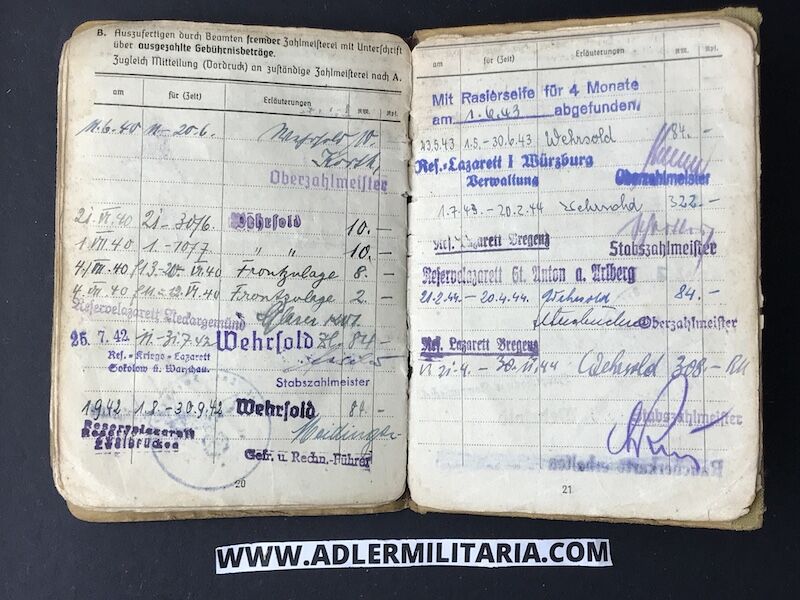 B. Auszufertigen durch Beamten fremder Zahlmeisterei mit Unterschrift
über ausgezahlte Gebührnisbeträge.
Zugleich Mitteilung (Vordruck) an zuständige Zahlmeisterei nach A.
am für (Zeit) Erläuterungen RM. Rpf.
11.6.40 11.-20.6. Wehrsold 10.
Oberzahlmeister
21.VI.40 21-30/6. Wehrsold 10.-
1.VII.40 1.-10/7 " " 10.-
Frontzulage 8.-
Frontzulage 2.-
Reservelazarett Neckargemünd
25.7.42 11.-31.7.42 Wehrsold 84.-
Res.-Kriegs-Lazarett
Sokolow ü. Warschau.
Stabszahlmeister
1942 1.8.-30.9.42 Wehrsold
Reservelazarett
Zweibrücken
Meidinger
Gefr. u. Rechn.-Führer
20
am für (Zeit) Erläuterungen RM. Rpf.
Mit Rasierseife für 4 Monate
am 1.6.43 abgefunden.
1.5.-30.6.43 Wehrsold 84.-
Res.-Lazarett I Würzburg
Verwaltung Oberzahlmeister
1.7.43.-20.2.44 Wehrsold 322.-
Res. Lazarett Bregenz Stabszahlmeister
Reservelazarett St. Anton a. Arlberg
21.2.44.-20.4.44. Wehrsold 84.-
Oberzahlmeister
Res. Lazarett Bregenz
21.4.-30.11.44 Wehrsold 308.- RM
Stabszahlmeister
21
WWW.ADLERMILITARIA.COM